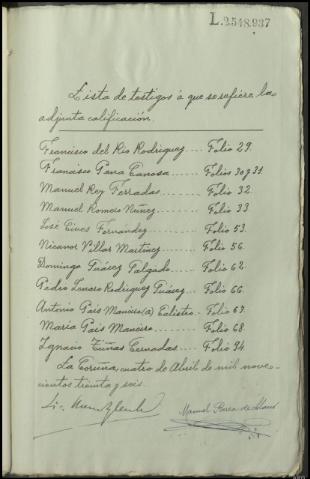 L.2548.937
Lista de testigos á que se refiere la
adjunta calificación.
Francisco del Río Rodríguez.... Folio 29.
Francisco Pana Canosa...... Folios 30 y 31.
Manuel Rey Ferradas....... Folio 32.
Manuel Romeis Núñez....... Folio 33
José Fernández...... Folio 53.
Nicanor Villar Martínez...... Folio 56.
Domingo Suárez Salgado.... Folio 62.
Pedro Rodríguez Suárez.. Folio 66
Antonio Pais (a) Calisto.. Folio 67.
María Pais...... Folio 68.
Ignacio.... Folio 94.
La Coruña, cuatro de Abril de mil nove-
cientos treinta y seis.
Manuel